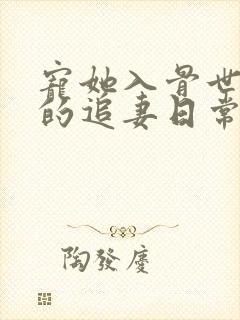 寵她入骨世
的追妻日常
陶發慶